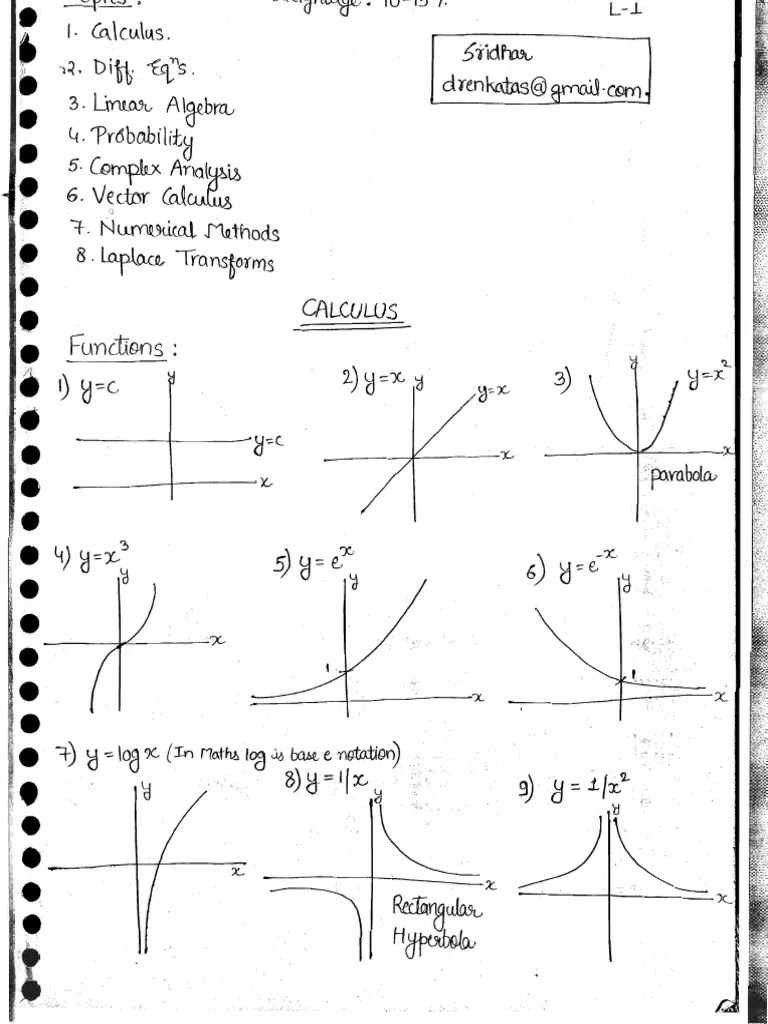 Topics :
Weightage : 10-15 %.
L-1
1. Calculus.
2. Diff. Eqⁿs.
3. Linear Algebra
4. Probability
5. Complex Analysis
6. Vector Calculus
7. Numerical Methods
8. Laplace Transforms
Sridhar
drenkatas@gmail.com.
CALCULUS
Functions :
1) y=c
y
y=c
x
2) y=x
y
y=x
x
3)
y
y=x²
x
parabola
4) y=x³
y
x
5) y=eˣ
y
1
x
6) y=e⁻ˣ
y
1
x
7) y=log x (In Maths log is base e notation)
y
x
8) y=1/x
y
x
Rectangular
Hyperbola
9) y=1/x²
y
x